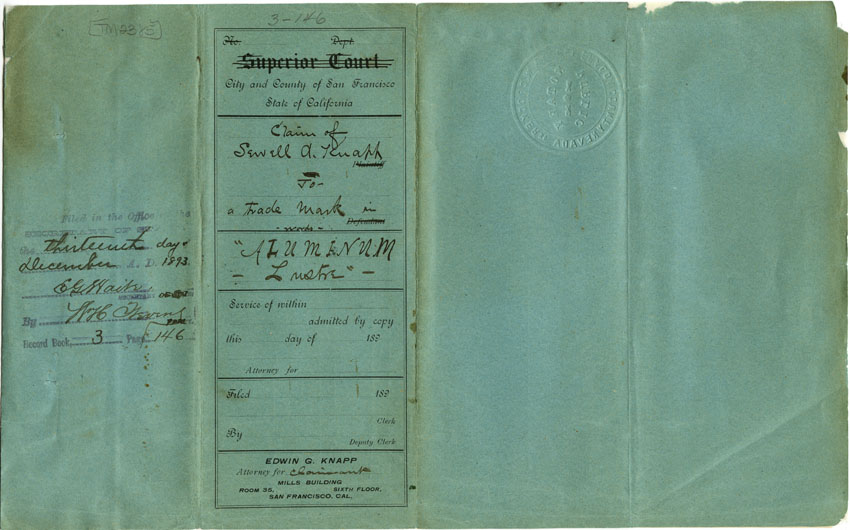 TM2385
3-146
No. Dept.
Superior Court
City and County of San Francisco
State of California
Claim of
Sewell A. Knapp
Plaintiff
To-
a Trade Mark in
Defendant
- words -
"ALUMENUM
- Lustre" -
Service of within
admitted by copy
this day of 189
Attorney for
Filed 189
Clerk
By
Deputy Clerk
EDWIN G. KNAPP
Attorney for Claimant
MILLS BUILDING
ROOM 35, SIXTH FLOOR,
SAN FRANCISCO, CAL.
Filed in the Office of the
SECRETARY OF
the thirteenth day of
December A. D. 1893
E G Waite
SECRETARY OF
By W H
Record Book 3 Page 146
NOTARY PUBLIC